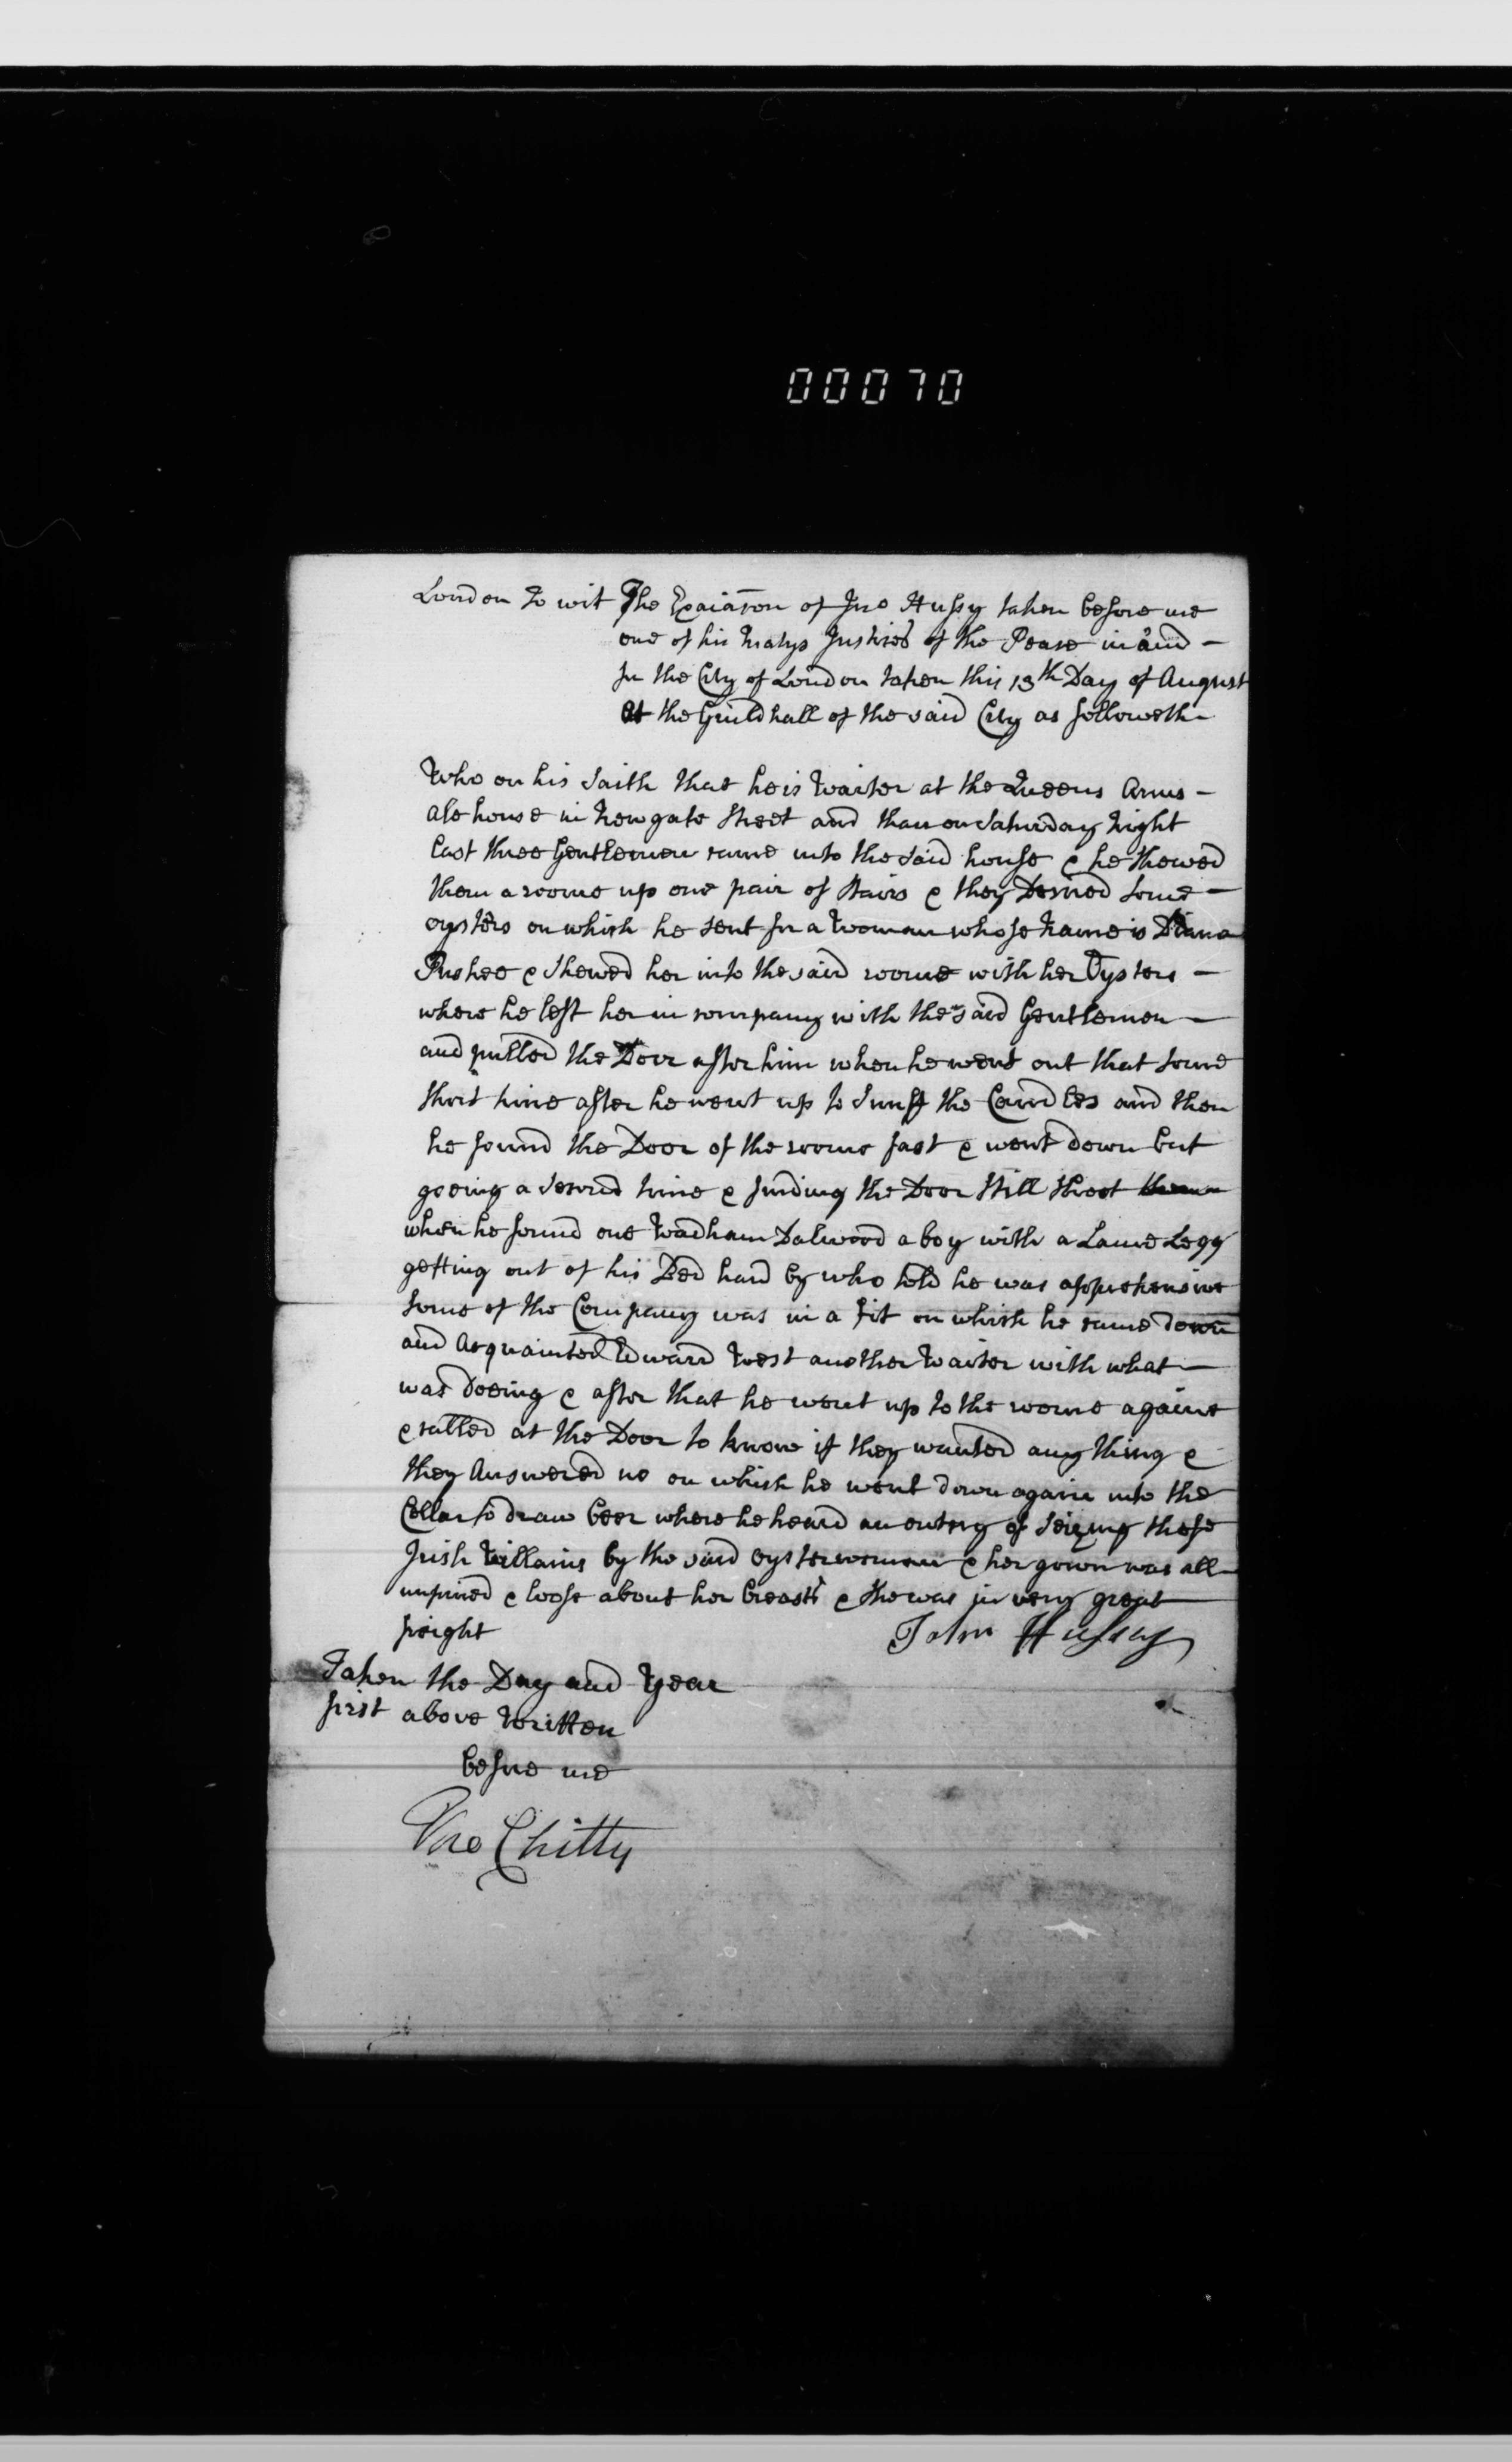 00070
London to wit The Exaiãcon of Jno Hussy taken before me
one of his Matys Justices of the Peace in and
for the City of London taken this 13th Day of August
At the Guildhall of the said City as followeth
Who on his Saith that he is Waiter at the Queens Arms
alehouse in Newgate Street and than on Saturday Night
last three Gentlemen came into the said house & he shewed
them a roome up one pair of Stairs & they Desired some
oysters on which he sent for a Woman whose Name is Diana
& shewed her into the said roome with her Oysters
where he left her in company with the said Gentlemen
and pulled the Door after him when he went out that some
short time after he went up to Snuff the Candles and then
he found the Door of the roome fast & went down but
goeing a second time & finding the Door Still shoot
when he found one Wadham Dalwood a boy with a Lame Legg
getting out of his Bed hard by who told he was apprehensive
some of the Company was in a fit on which he came down
and acquainted Edward West another Waiter with what
was doeing & after that he went up to the roome againe
& called at the Door to know if they wanted any thing &
they Answered no on which he went down again into the
Cellar to draw beer where he heard an outcry of Seizing those
Irish Villains by the said oysterwoman & her gown was all
unpined & loose about her breasts & she was in very great
fright
John Hussey
Taken the Day and Year
first above Written
before me
Tho Chitty